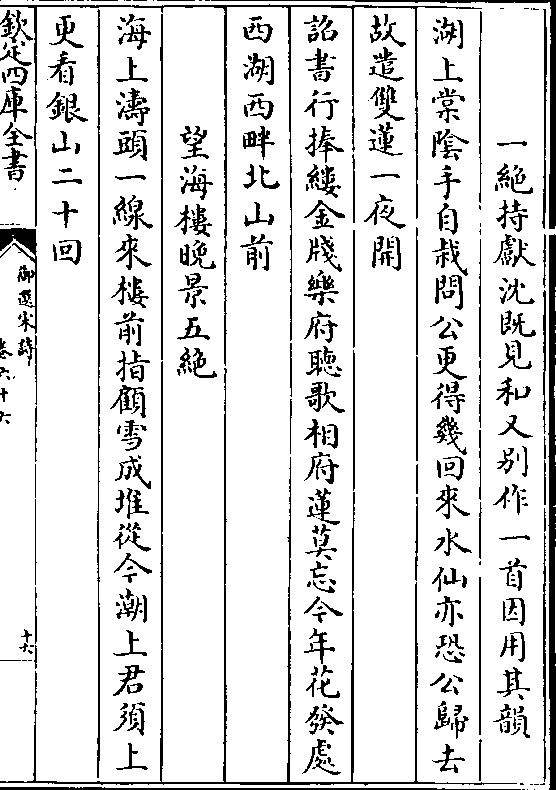 一絶持獻沈既見和又别作一首因用其韻
湖上棠陰手自栽問公更得幾回來水仙亦恐公歸去
故遣雙蓮一夜開
詔書行捧縷金牋樂府聽歌相府蓮莫忘今年花發處
西湖西畔北山前
望海樓晚景五絶
海上濤頭一線來樓前指顧雪成堆從今潮上君須上
更看銀山二十回
欽定四庫全書
御選宋詩
卷六十六
十六